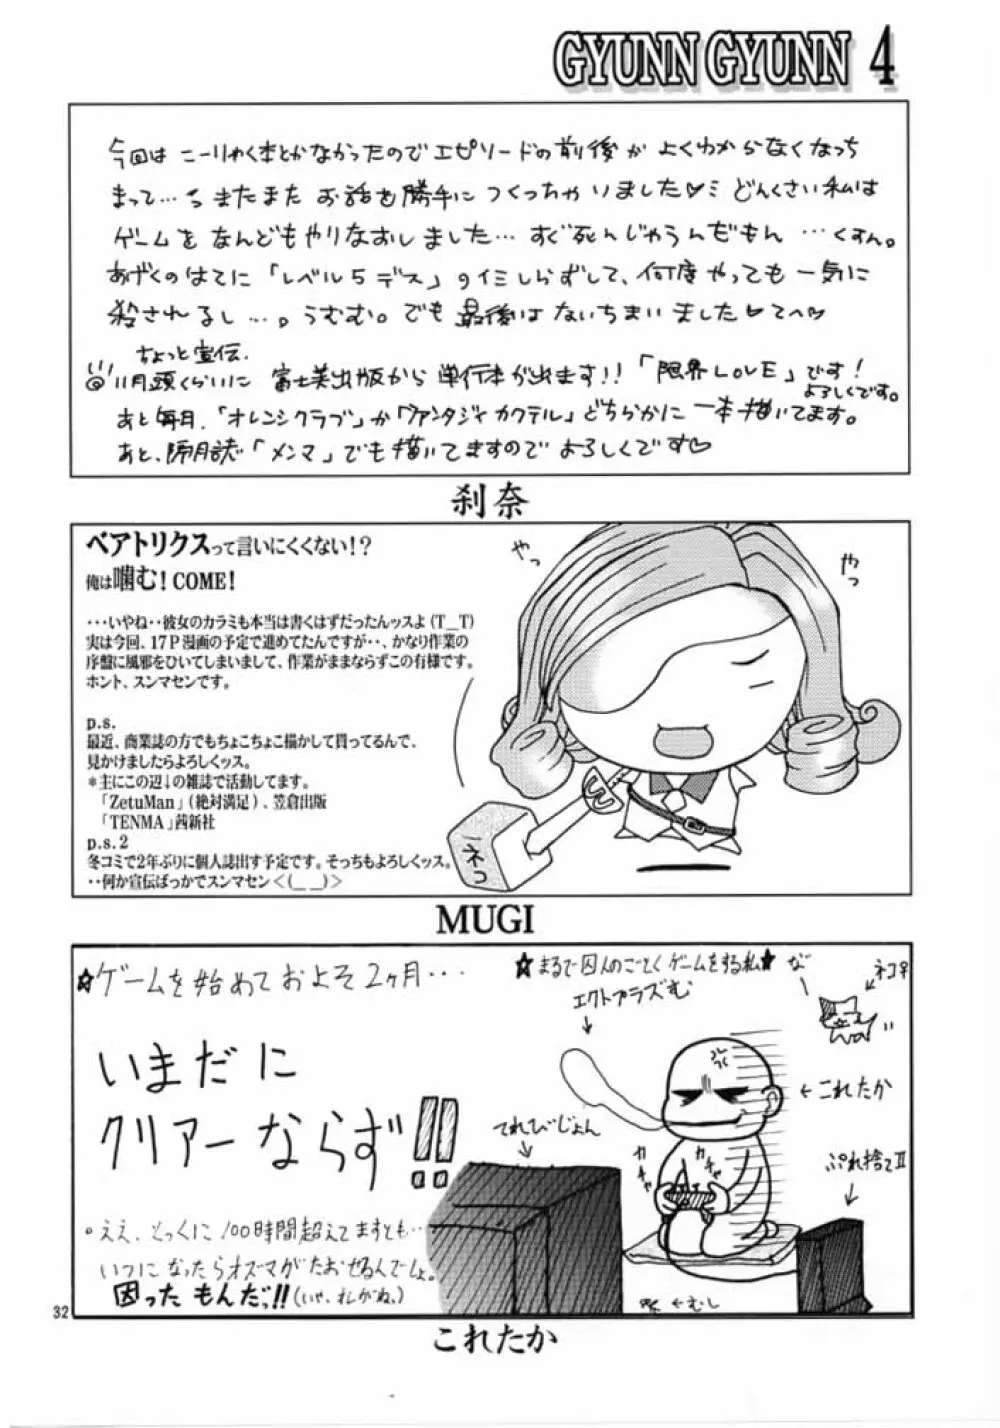 GYUNN GYUNN 4
今回は こーりゃく本とかなかったのでエピソードの前後が よくわからなくなっち
まって…。またまた お話を勝手に つくっちゃいました♡ミ どんくさい私は
ゲームを なんどもやりなおしました… すぐ死んじゃうんだもん …くすん。
あげくのはてに「レベル5デス」のイミしらずして、何度やっても一気に
殺されるし…。うむむ。でも 最後はないちまいました♡てへ♡
ちょっと宣伝、
11月頭くらいに 富士美出版から 単行本が出ます!!「限界LOVE」です!
よろしくです。
あと毎月、「オレンジクラブ」か「ヴァンタジィカクテル」どちらかに 一本描いてます。
あと、隔月誌「メンマ」でも描いてますのでよろしくです♡
刹奈
ベアトリクスって言いにくくない!?
俺は噛む! COME!
・・・いやね・・彼女のカラミも本当は書くはずだったんッスよ(T_T)
実は今回、17P漫画の予定で進めてたんですが・・、かなり作業の
序盤に風邪をひいてしまいまして、作業がままならずこの有様です。
ホント、スンマセンです。
p.s.
最近、商業誌の方でもちょこちょこ描かして貰ってるんで、
見かけましたらよろしくッス。
*主にこの辺↓の雑誌で活動してます。
「ZetuMan」(絶対満足)、笠倉出版
「TENMA」茜新社
p.s.2
冬コミで2年ぶりに個人誌出す予定です。そっちもよろしくッス。
・・何か宣伝ばっかでスンマセン<(_ _)>
やっ
やっ
ネコ
MUGI
☆ゲームを始めておよそ2ヶ月・・・
いまだに
クリアーならず!!
。ええ、とっくに100時間超えてますとも…
いつになったらオズマがたおせるんでしょ。
困ったもんだっ!!(いや、オレがね。)
☆まるで囚人のごとくゲームをする私★
エクトプラズむ
な
ネコ
←これたか
てれびじょん
ガチャ
ガチャ
ぷれ捨てII
←むし
32
これたか